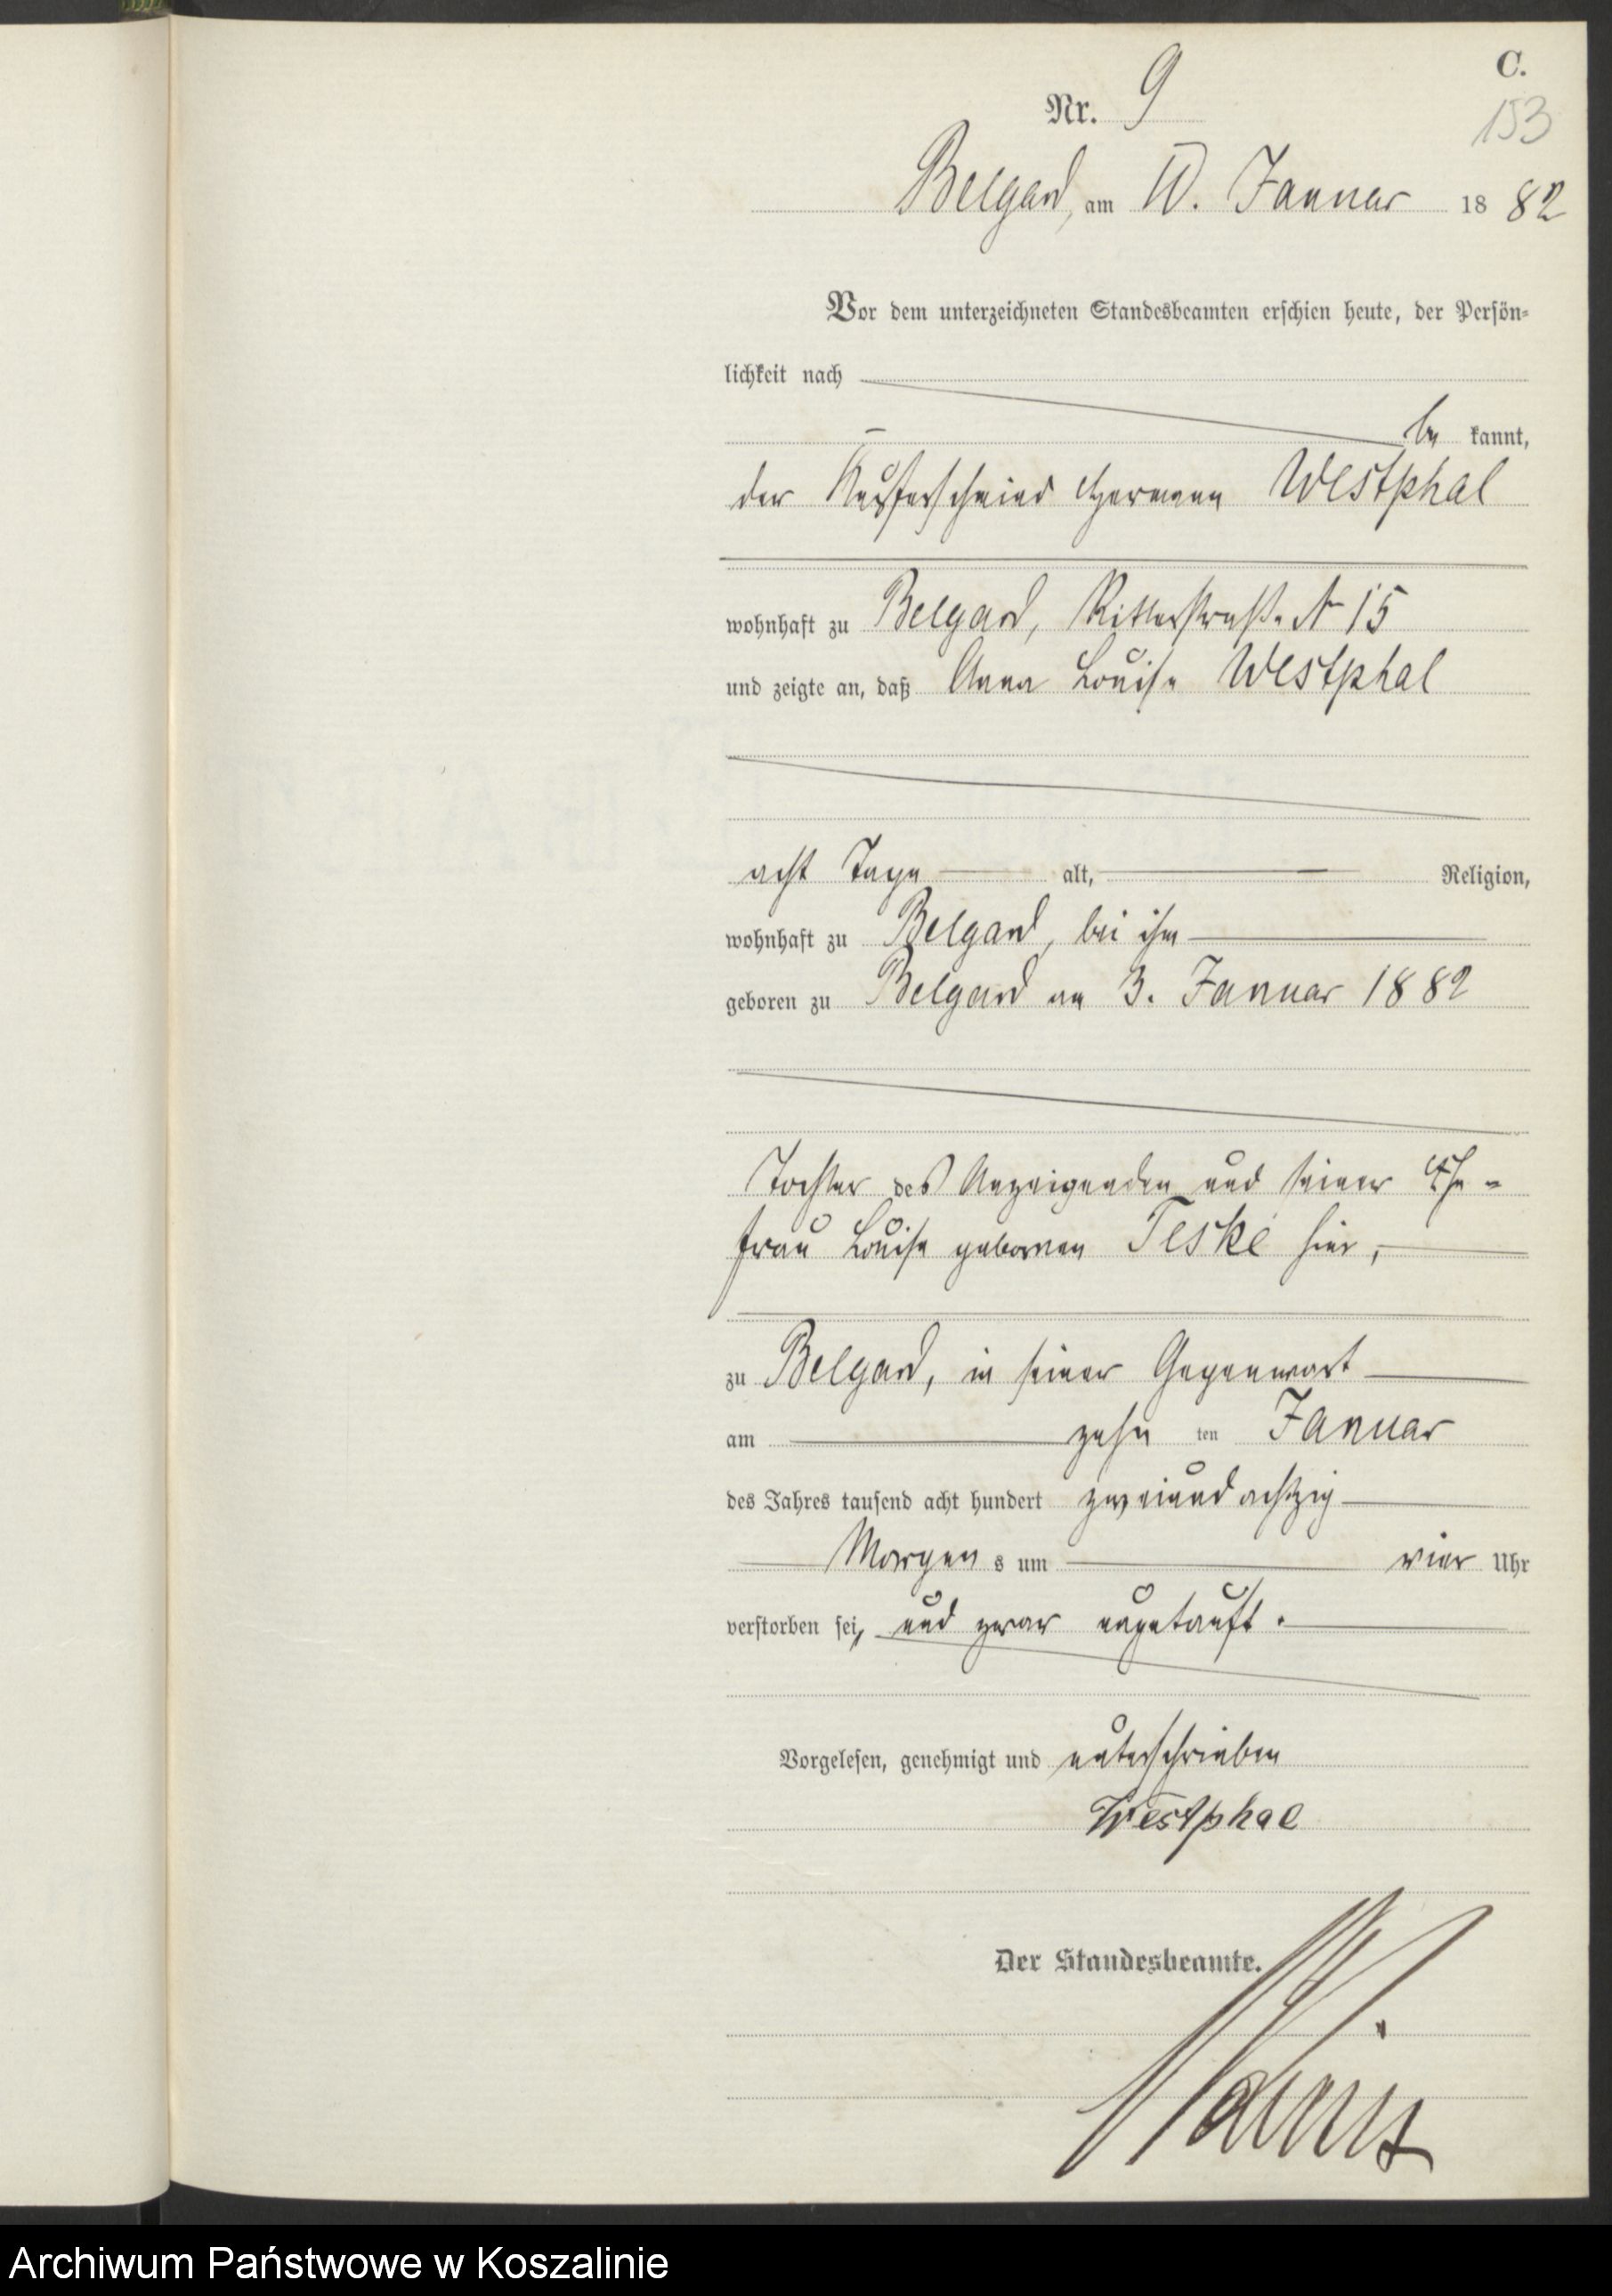 C.
Nr. 9
153
Belgard, am 10. Januar 1882
Vor dem unterzeichneten Standesbeamten erschien heute, der Persön-
lichkeit nach
be kannt,
der Kupferschmied Hermann Westphal
wohnhaft zu Belgard, Ritterstraße № 15
und zeigte an, daß Anna Louise Westphal
acht Tage alt, Religion,
wohnhaft zu Belgard, bei ihm
geboren zu Belgard am 3. Januar 1882
Tochter des Anzeigenden und seiner Ehe-
frau Louise geborenen Teske hier,
zu Belgard, in seiner Gegenwart
am zehn ten Januar
des Jahres tausend acht hundert zweiundachtzig
Morgen s um vier Uhr
verstorben sei, und zwar ungetauft.
Vorgelesen, genehmigt und unterschrieben
Westphal
Der Standesbeamte.
Archiwum Państwowe w Koszalinie